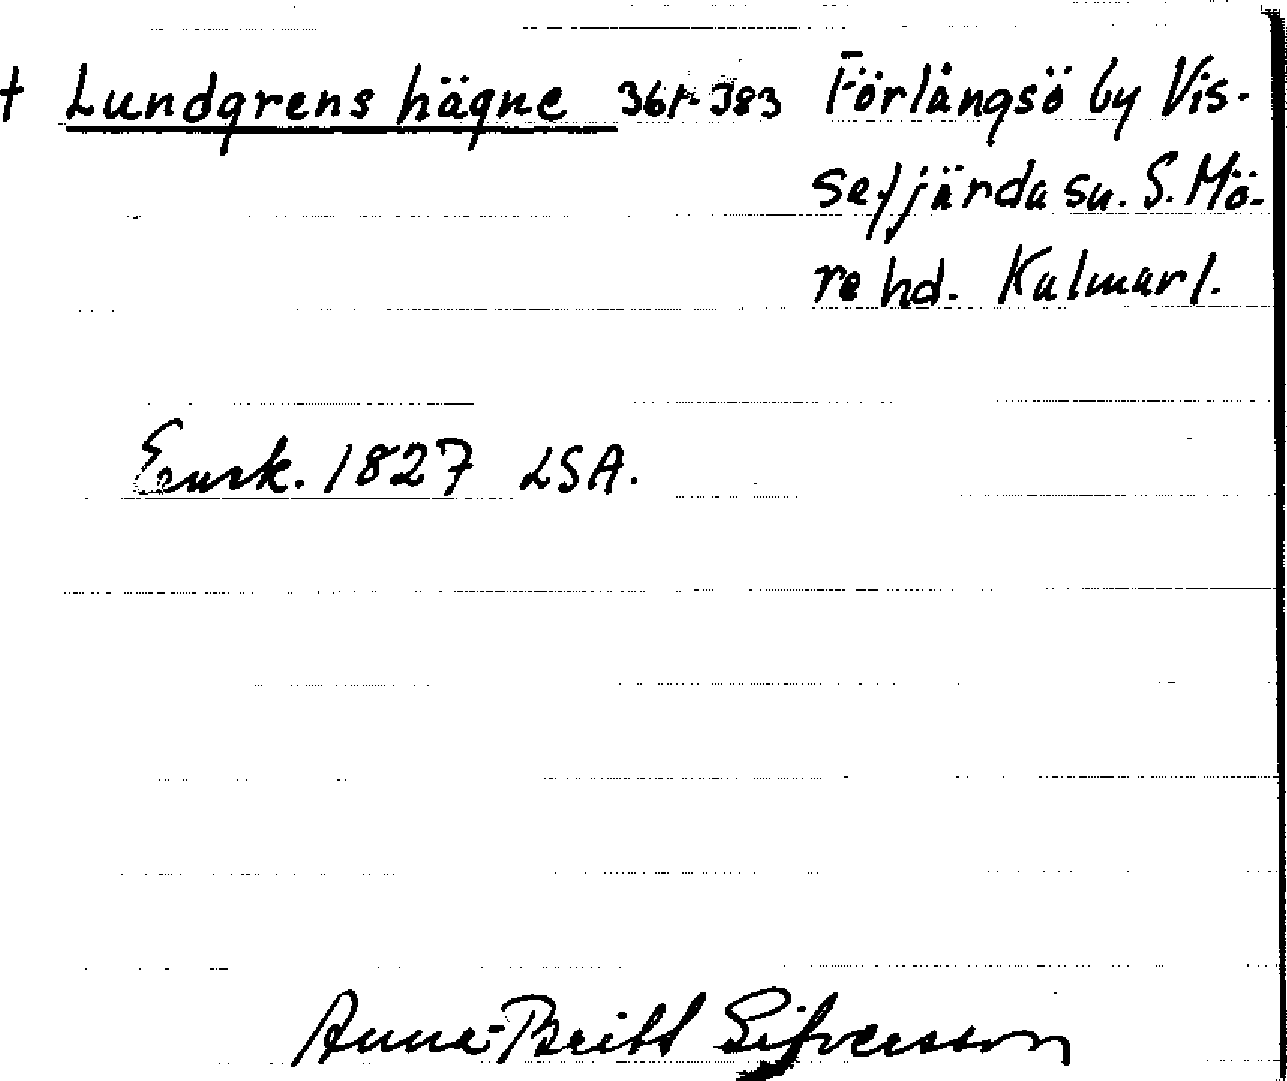 † Lundgrens hägne 361-383 Förlångsö by Vis-
sefjärda sn. S. Mö-
re hd. Kalmar l.
Ensk. 1827 LSA.
Anna-Britt Sifversson